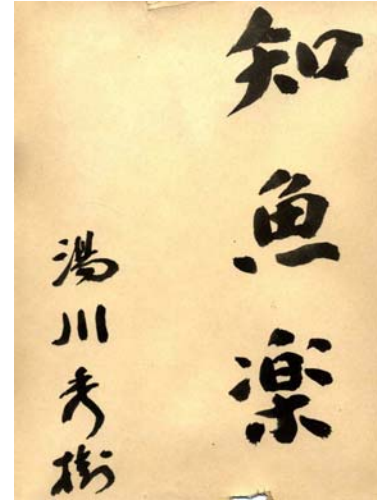 知魚楽
湯川秀樹